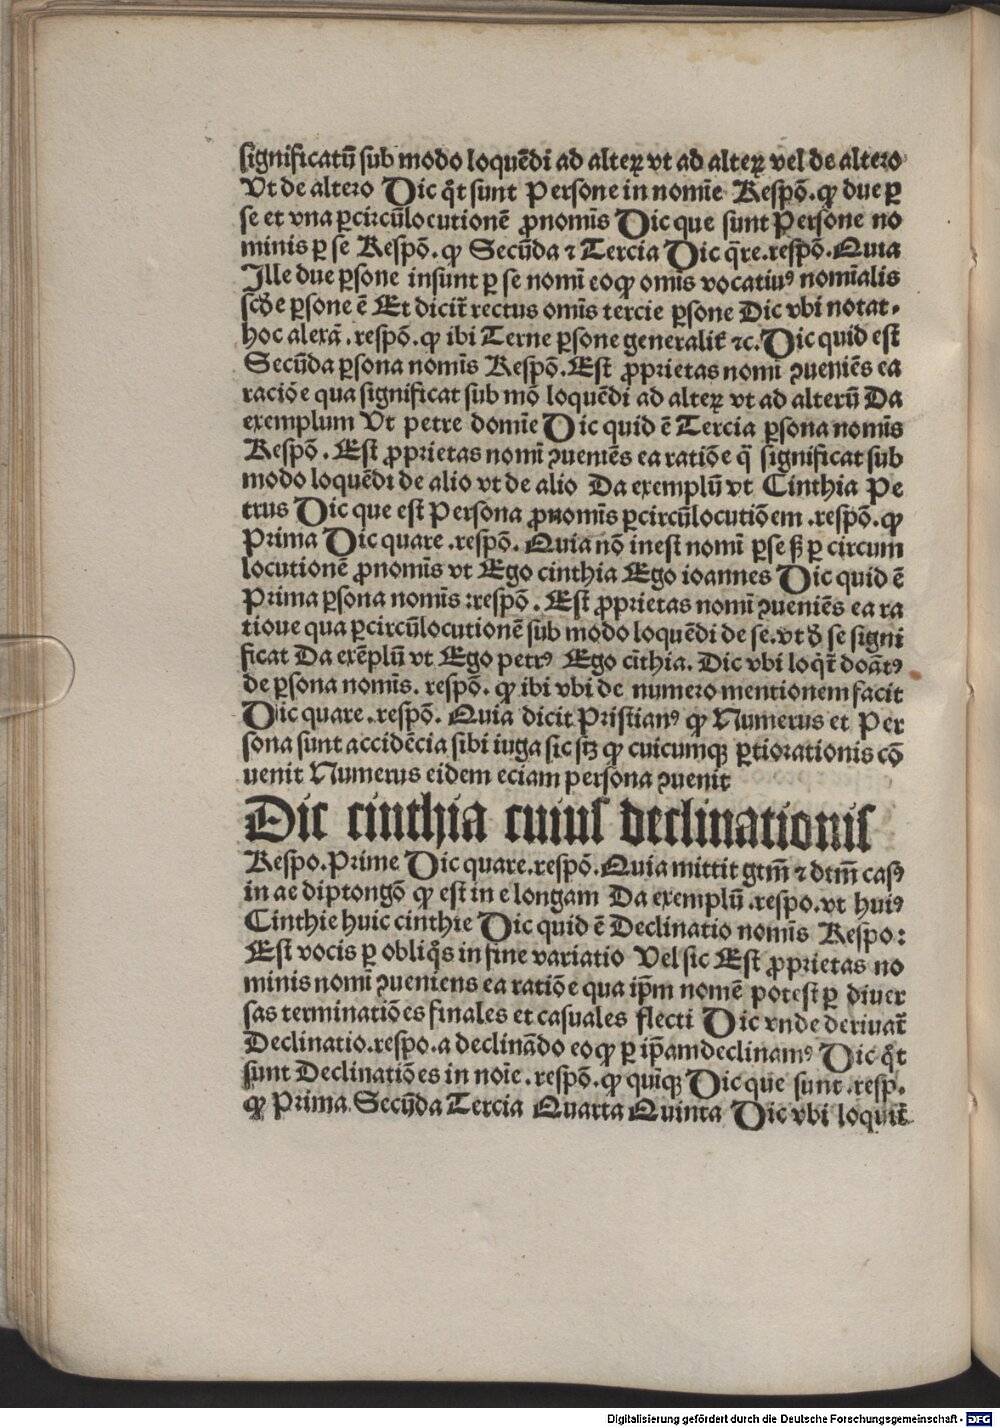 significatū sub modo loquēdi ad alteꝝ vt ad alteꝝ vel de altero
Vt de altero Dic q̄t sunt Persone in nomīe Respō. ꝙ due ꝑ
se et vna ꝑcircūlocutionē ꝓnomīs Dic que sunt Persone no
minis ꝑ se Respō. ꝙ Secūda ⁊ Tercia Dic q̄re.respō. Quia
Ille due ꝑsone insunt ꝑ se nomī eoꝙ omīs vocatiuꝰ nomīalis
scd̄e ꝑsone ē Et dicit̄ rectus omīs tercie ꝑsone Dic vbi notat.
hoc alexā.respō.ꝙ ibi Terne ꝑsone generalit̄ ⁊c. Dic quid est
Secūda ꝑsona nomīs Respō. Est ꝓprietas nomī ꝯueniēs ea
raciōe qua significat sub mō loquēdi ad alteꝝ vt ad alterū Da
exemplum Vt petre domīe Dic quid ē Tercia ꝑsona nomīs
Respō. Est ꝓprietas nomī ꝯueniēs ea ratiōe q̄ significat sub
modo loquēdi de alio vt de alio Da exemplū vt Cinthia Pe
trus Dic que est Persona ꝓnomīs ꝑcircūlocutiōem.respō.ꝙ
Prima Dic quare.respō. Quia nō inest nomī ꝑse ß ꝑ circum
locutionē ꝓnomīs vt Ego cinthia Ego ioannes Dic quid ē
Prima ꝑsona nomīs:respō. Est ꝓprietas nomī ꝯueniēs ea ra
tioue qua ꝑcircūlocutionē sub modo loquēdi de se.vt d̄ se signi
ficat Da exēplū vt Ego petrꝰ Ego cīthia. Dic vbi loq̄t̄ doātꝰ
de ꝑsona nomīs. respō. ꝙ ibi vbi de numero mentionem facit
Dic quare.respō. Quia dicit Pristianꝰ ꝙ Numerus et Per
sona sunt accidēcia sibi iuga sic sꝫ ꝙ cuicumqꝫ ꝑtiorationis cō
uenit Numerus eidem eciam persona ꝯuenit
Dic cinthia cuius declinationis
Respo. Prime Dic quare.respō. Quia mittit gtm̄ ⁊ dtm̄ casꝰ
in ae diptongō ꝙ est in e longam Da exemplū.respo.vt huiꝰ
Cinthie huic cinthie Dic quid ē Declinatio nomīs Respo:
Est vocis ꝑ obliq̄s in fine variatio Vel sic Est ꝓprietas no
minis nomī ꝯueniens ea ratiōe qua ip̄m nomē potest ꝑ diuer
sas terminatiōes finales et casuales flecti Dic vnde deriuat̄
Declinatio.respo.a declinādo eoꝙ ꝑ ip̄am declinamꝰ Dic q̄t
sunt Declinatiōes in noīe.respō.ꝙ quīqꝫ Dic que sunt.resp.
ꝙ Prima Secūda Tercia Quarta Quinta Dic vbi loquit̄
Digitalisierung gefördert durch die Deutsche Forschungsgemeinschaft - DFG